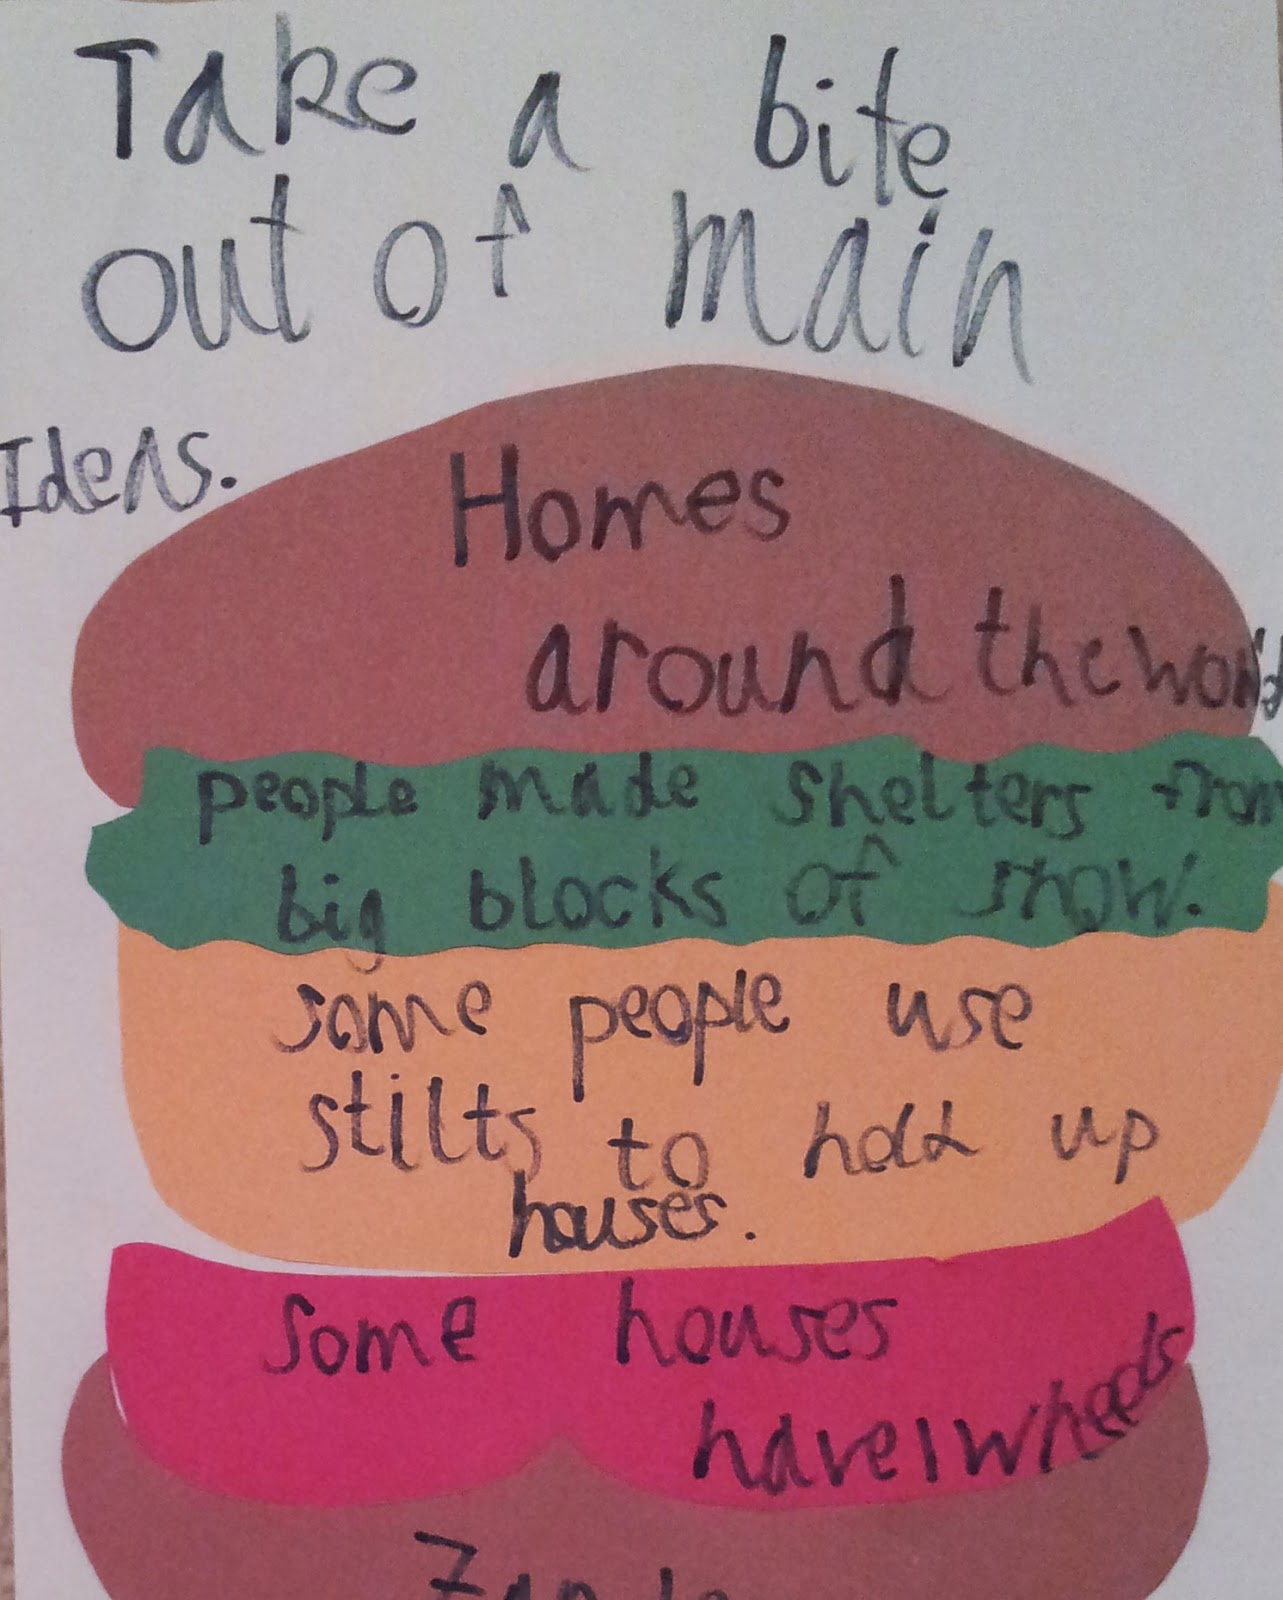 Take a bite
out of main
Ideas.
Homes
around the world
people made shelters from
big blocks of snow.
some people use
stilts to hold up
houses.
Some houses
have wheels